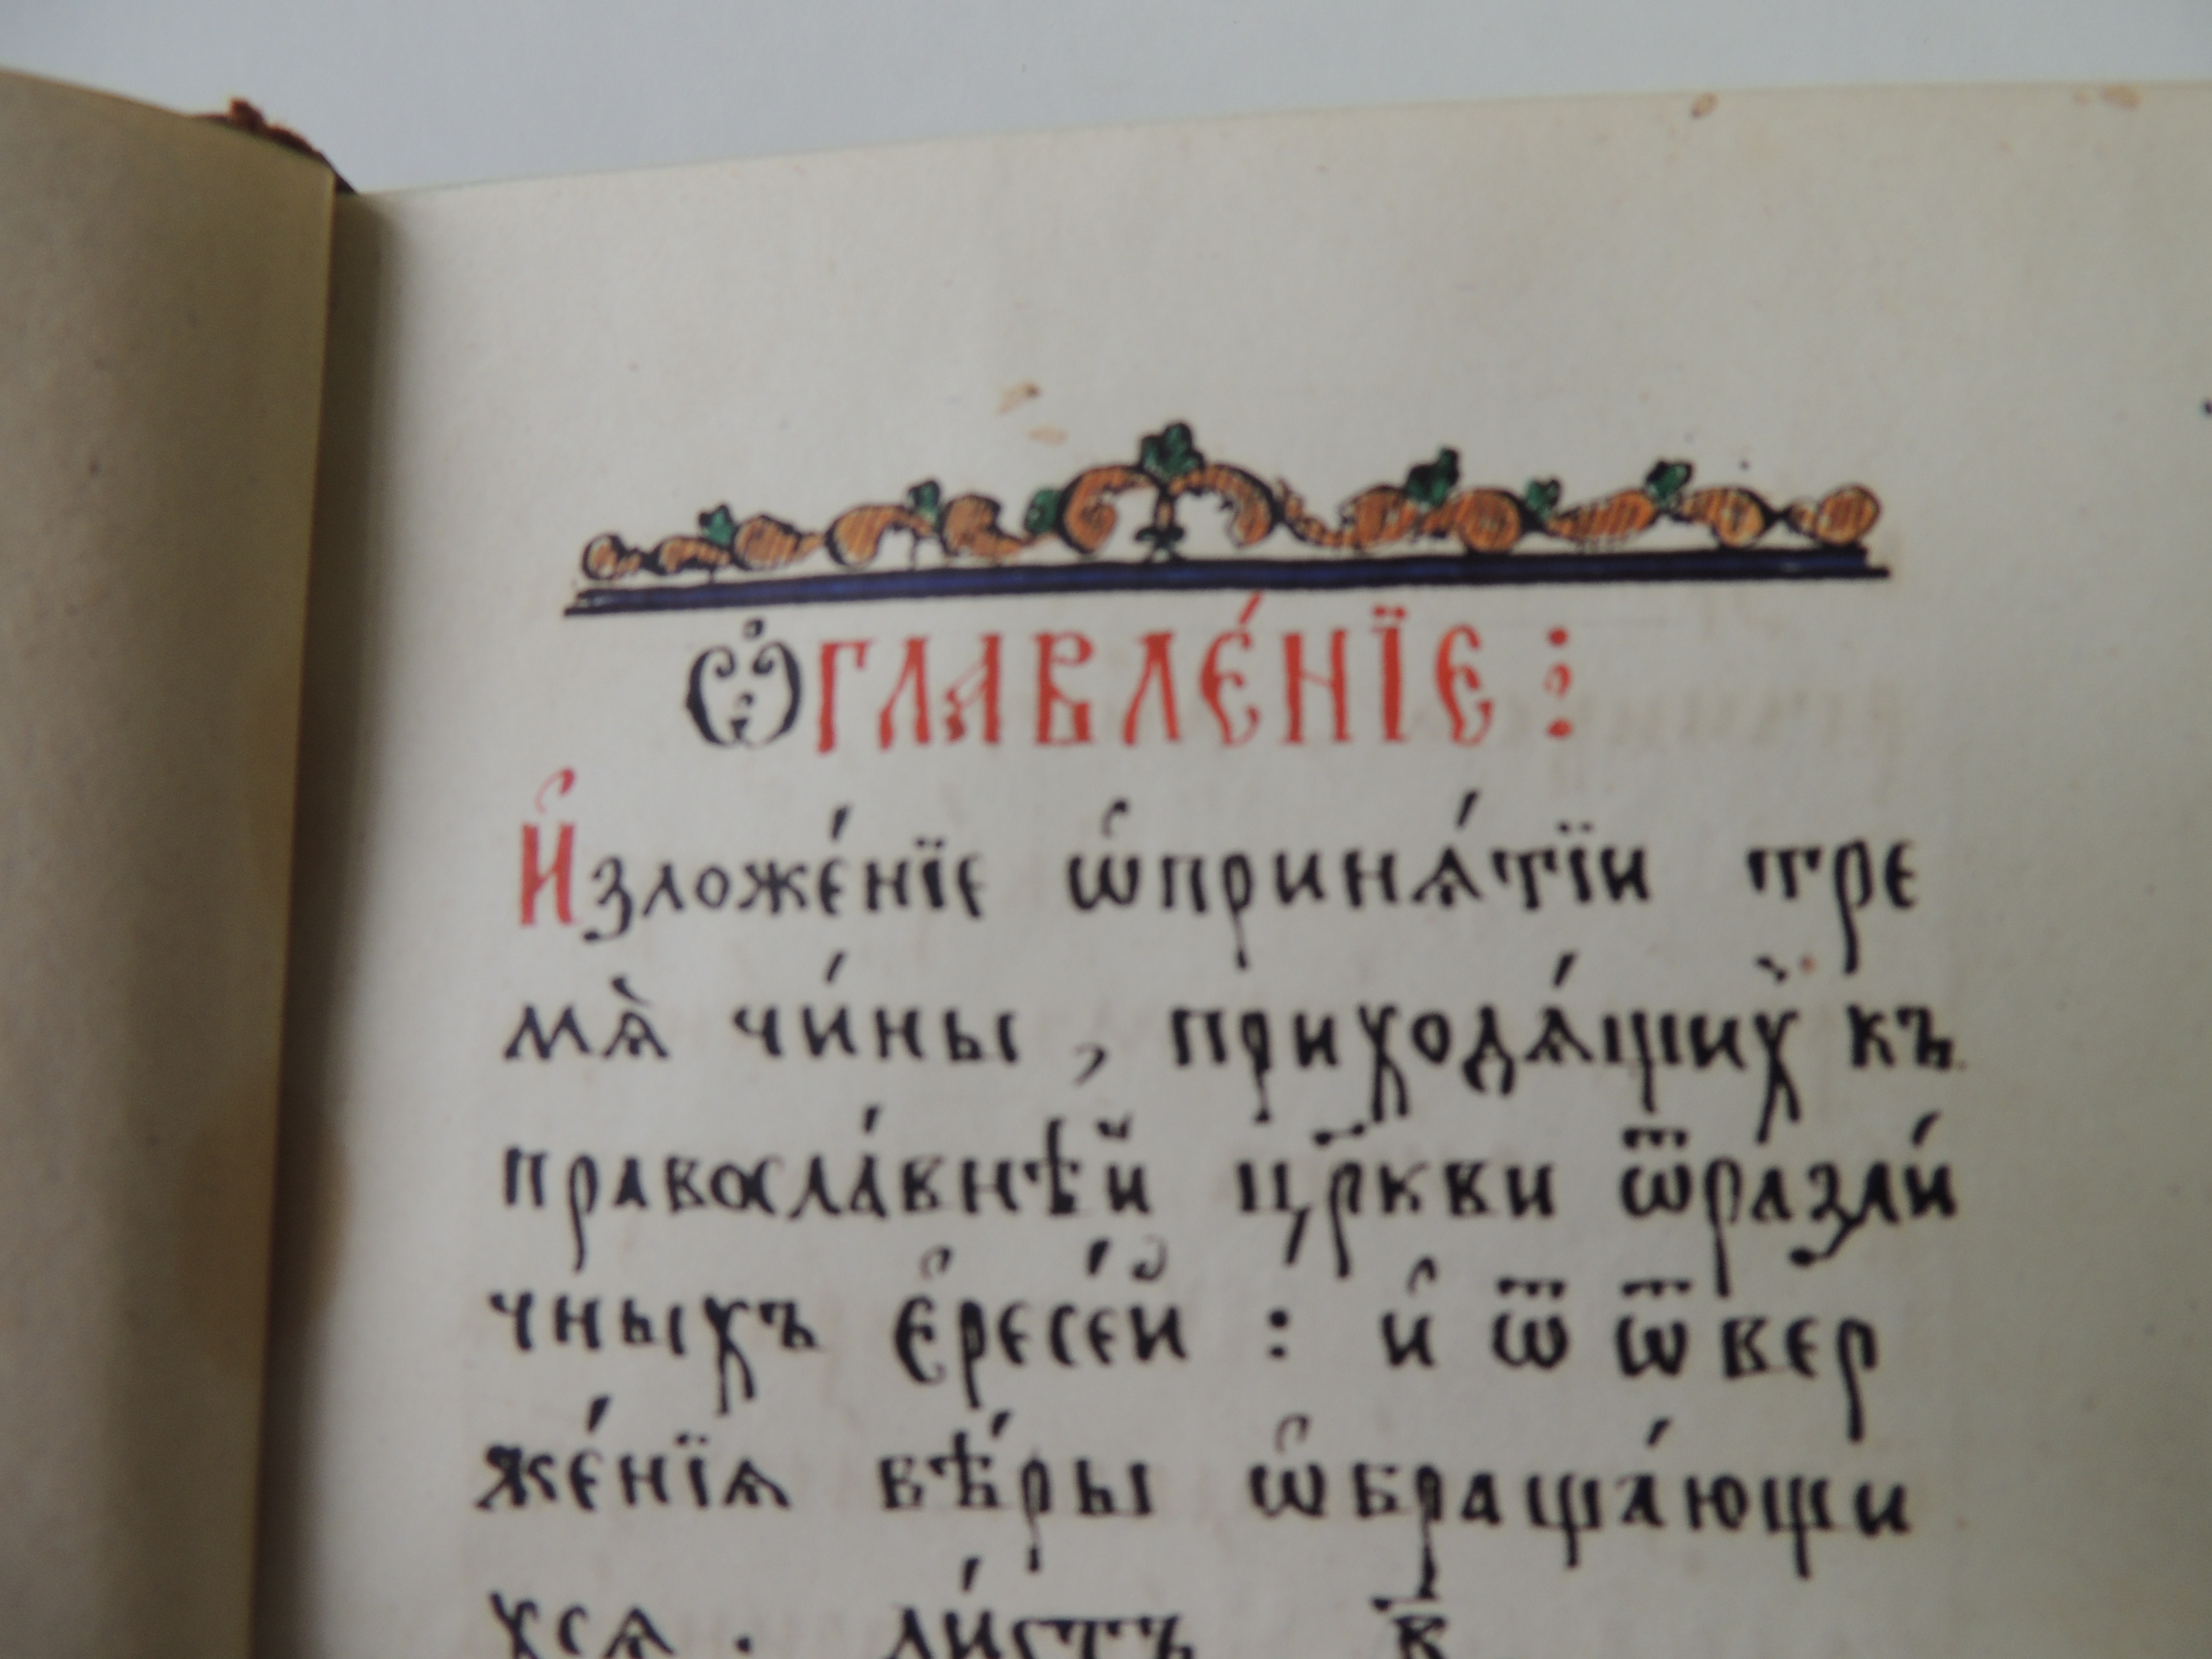 Ѡ҆главле́нїе:
И҆зложе́нїе ѡ҆приня́тїи тре
мѧ̀ чи́ны, приходѧ́щих къ
правосла́внѣй цр҃кви ѿразли́
чныхъ є҆ресе́й : и҆ ѿ ѿвер
же́нїѧ вѣ́ры ѡ҆браща́ющи
хсѧ. ли́стъ в҃